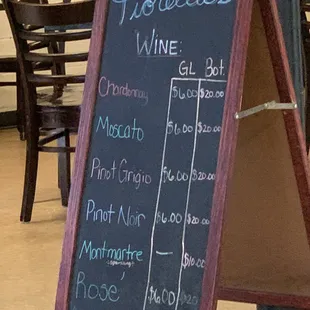 WINE:
GL Bot.
Chardonnay $6.00 $20.00
Moscato $6.00 $20.00
Pinot Grigio $6.00 $20.00
Pinot Noir $6.00 $20.00
Montmartre — $10.00
Rosé $6.00 $20